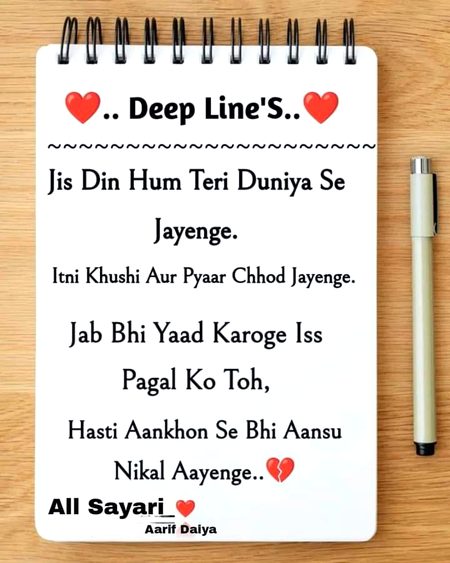 ❤️.. Deep Line'S..❤️
~~~~~~~~~~~~~~~~~~~~~
Jis Din Hum Teri Duniya Se
Jayenge.
Itni Khushi Aur Pyaar Chhod Jayenge.
Jab Bhi Yaad Karoge Iss
Pagal Ko Toh,
Hasti Aankhon Se Bhi Aansu
Nikal Aayenge..💔
All Sayari_❤️
Aarif Daiya